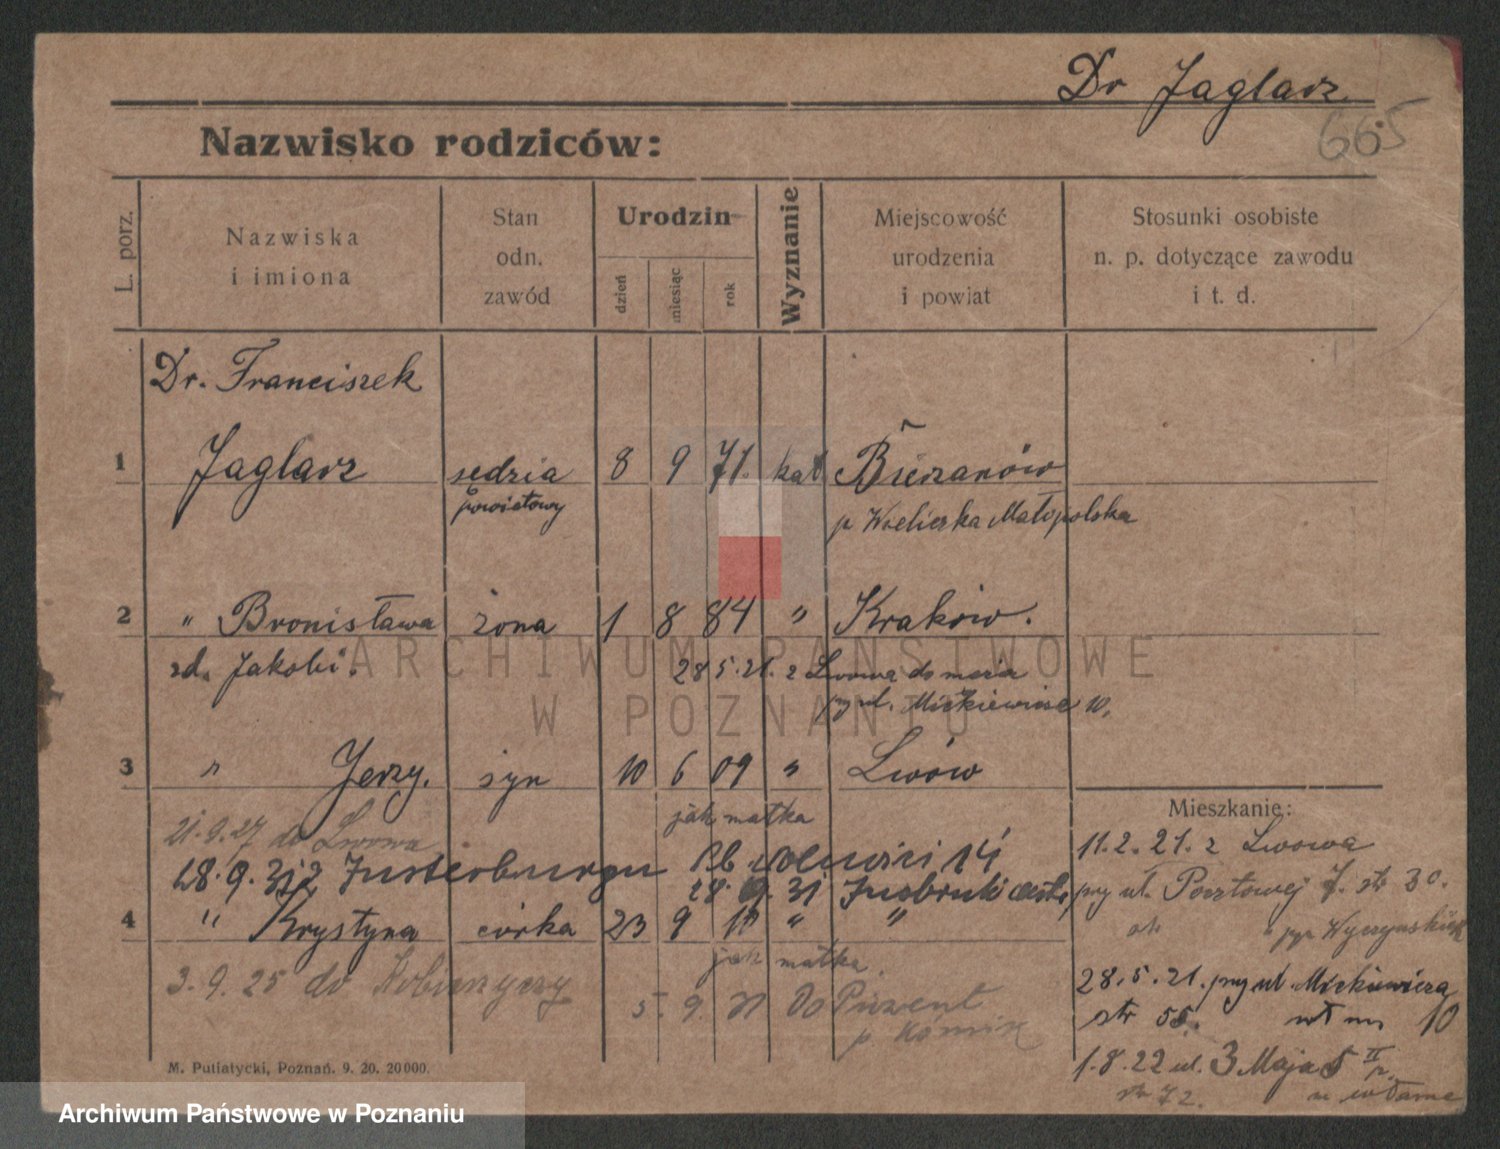 Dr Jaglarz
665
Nazwisko rodziców:
L. porz.
Nazwiska
i imiona
Stan
odn.
zawód
Urodzin
dzień
miesiąc
rok
Wyznanie
Miejscowość
urodzenia
i powiat
Stosunki osobiste
n. p. dotyczące zawodu
i t. d.
Dr. Franciszek
1 Jaglarz sędzia 8 9 71. kat Bieżanów
powiatowy p Wieliczka Małopolska
2 " Bronisława żona 1 8 84 " Kraków.
zd. Jakobi. 28 5. 21. z Lwowa do męża
przy ul. Mickiewicza 10.
3 " Jerzy. syn 10 6 09 " Lwów
jak matka
21. 9. 27 do Lwowa
28. 9. 31 z Insterburgu 14
28. 9. 31 Insbruki
4 " Krystyna córka 23 9 " "
jak matka
3. 9. 25 do
5. 9. do
p.
Mieszkanie:
11. 2. 21. z Lwowa
przy ul. Pocztowej str 30.
28. 5. 21. przy ul. Mickiewicza
str 55. 10
1. 8. 22 ul. 3 Maja 5 II p.
str 72.
M. Putiatycki, Poznań. 9. 20. 20000.
ARCHIWUM PAŃSTWOWE
W POZNANIU
Archiwum Państwowe w Poznaniu